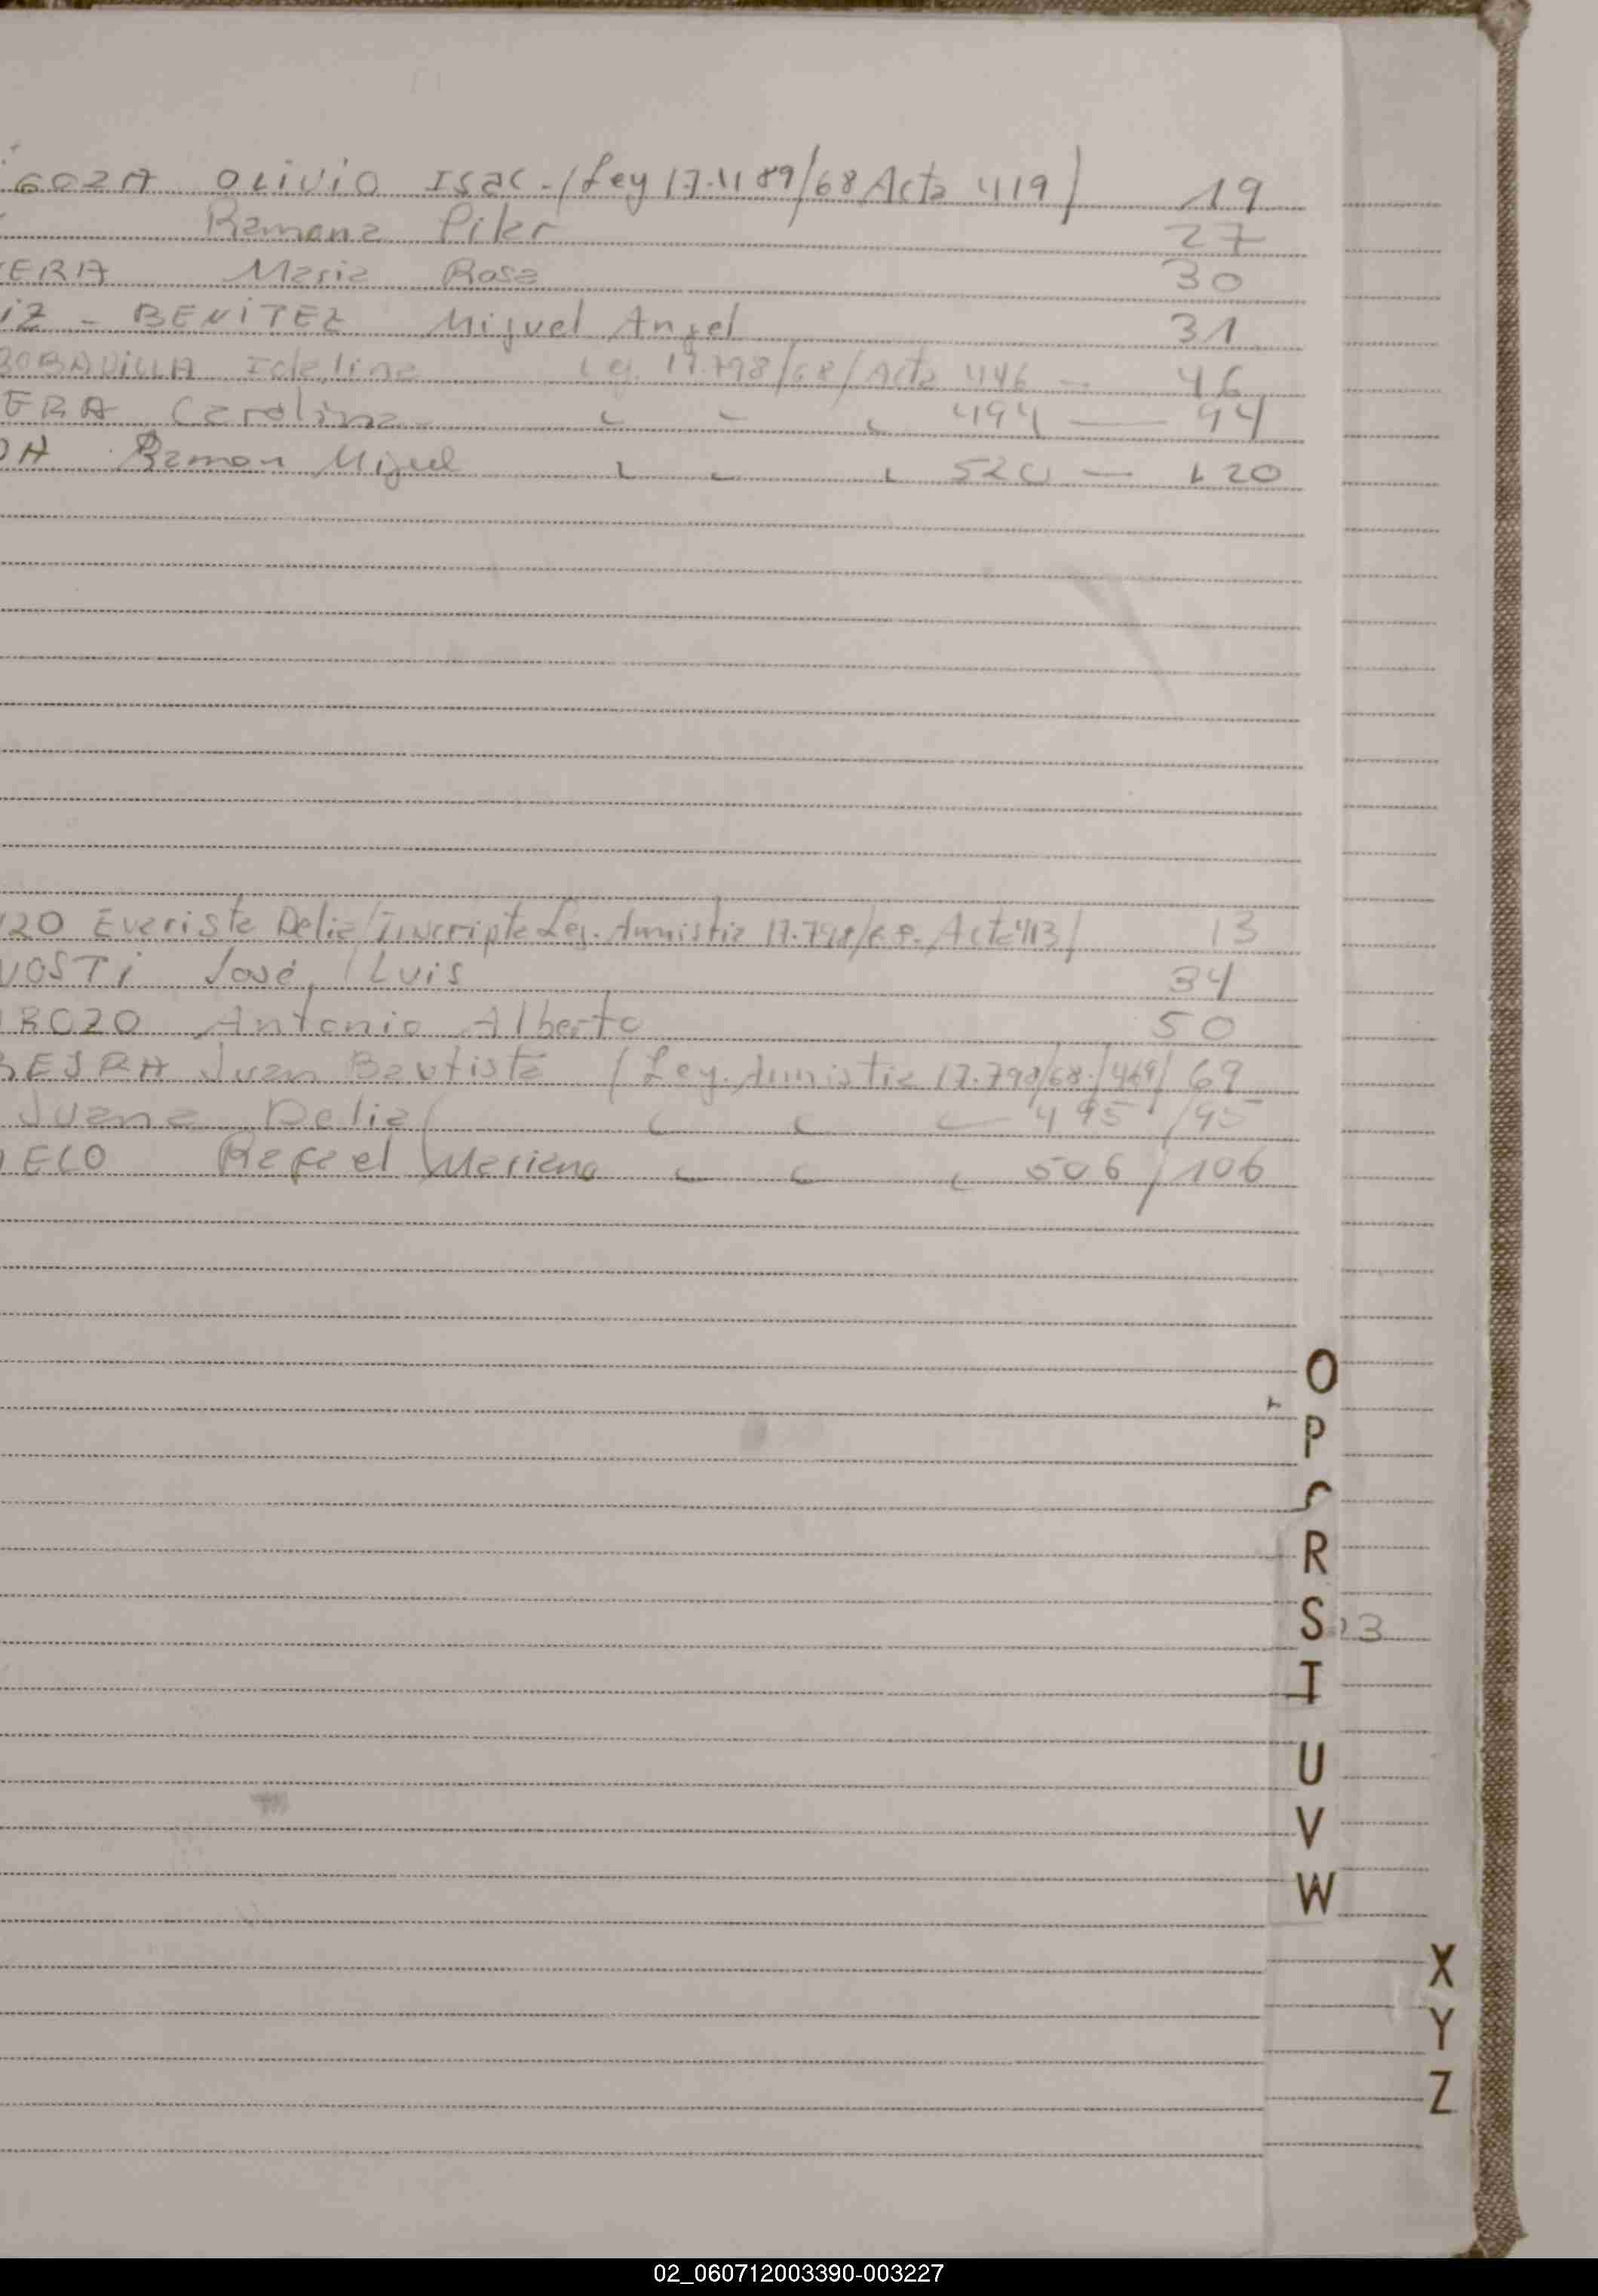 GOZA OLIVIO ISac.-/Ley 17.489/68 Acta 419/ 19
Ramona Pilar 27
ERA Maria Rosa 30
iZ - BENiTEZ Miguel Angel 31
BOBADiLLA Idelina Ley. 17.798/68/Acta 446 - 46
ERA Carolina 494 — 94
Ramon Miguel 520 — 120
Evarista Delia/Inscripta Ley. Amnistia 17.798/68. Acta 413/ 13
VOSTi José Luis 34
ROZO Antonio Alberto 50
Juan Bautista (Ley. Amnistia 17.798/68./469/ 69
Juana Delia/ 495 /95
ECO Rafael Mariano 506/106
O
P
R
S 23
T
U
V
W
X
Y
Z
02_060712003390-003227